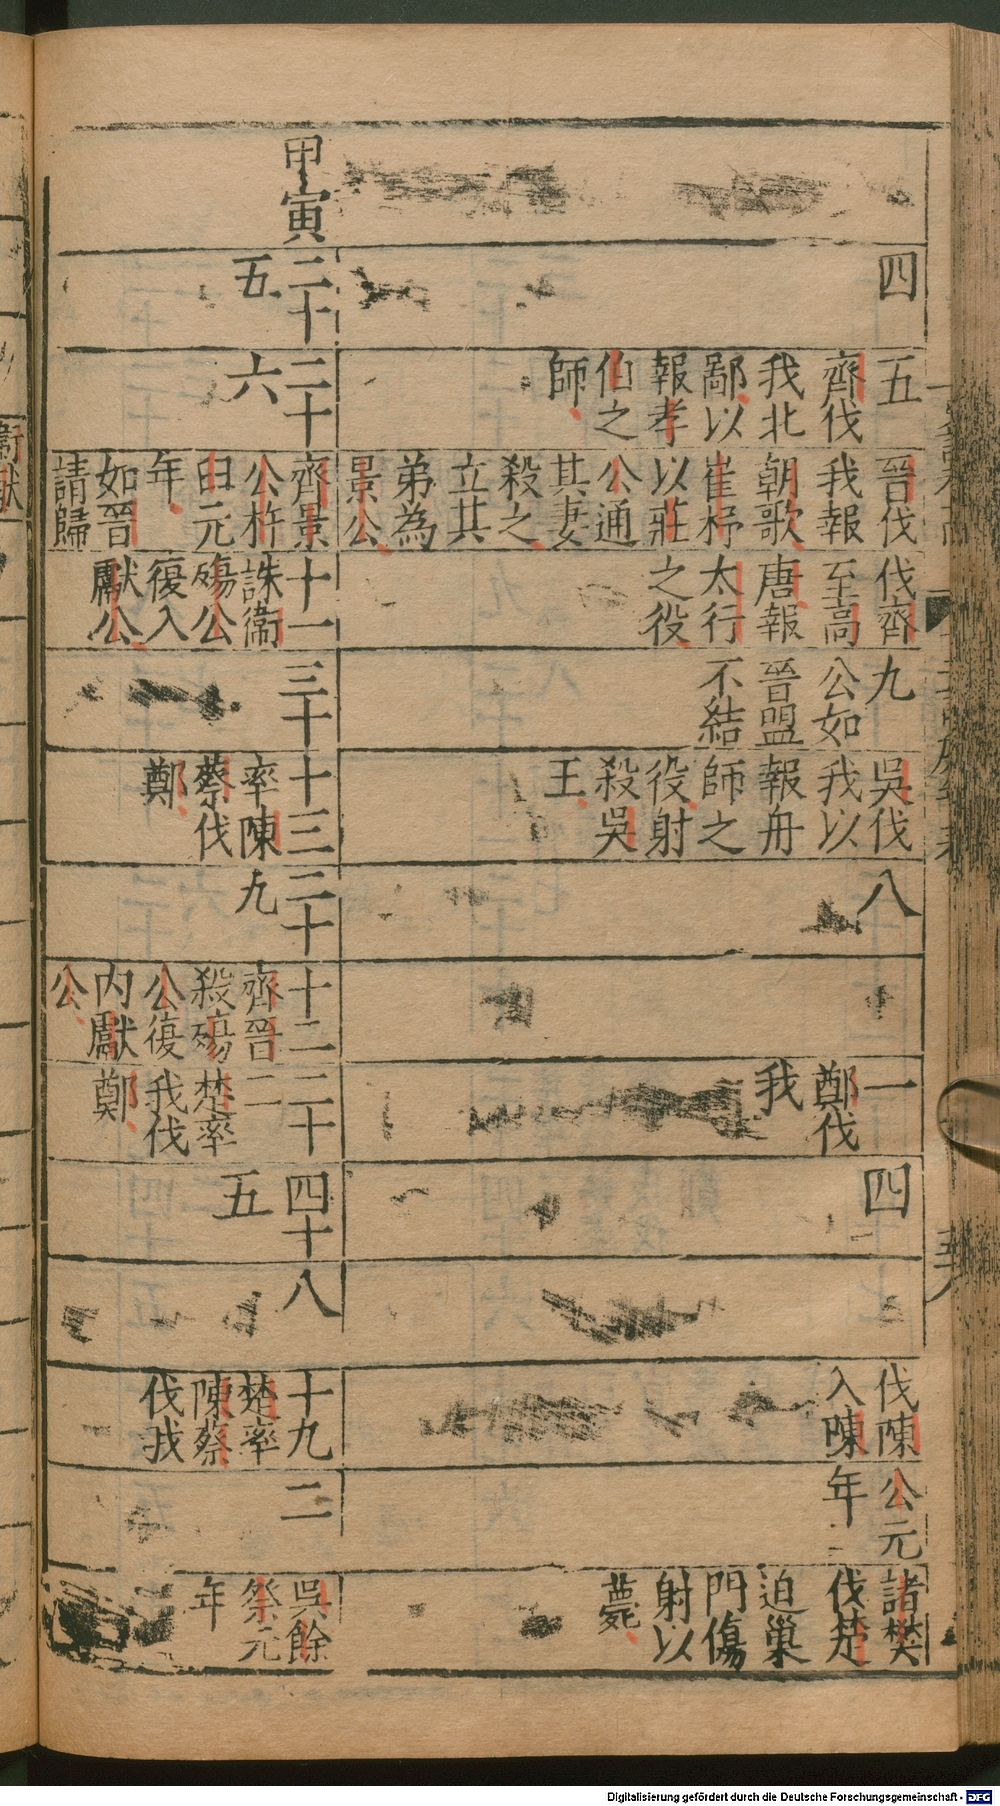 四
五
齊伐
我北
鄙以
報孝
伯之
師
晉伐
我報
朝歌
崔杼
以莊
公通
其妻
殺之
立其
弟為
景公
伐齊
至高
唐報
太行
之役
九
公如
晉盟
不結
吳伐
我以
報舟
師之
役射
殺吳
王
八
一
鄭伐
我
四
伐陳
入陳
公元
年
諸樊
伐楚
迫巢
門傷
射以
薨
甲寅
二十
五
二十
六
齊景
公杵
臼元
年
如晉
請歸
十一
誅衞
殤公
復入
獻公
三十
十三
率陳
蔡伐
鄭
二十
九
十二
齊晉
殺殤
公復
內獻
公
二十
二
楚率
我伐
鄭
四十
五
八
十九
楚率
陳蔡
伐我
二
吳餘
祭元
年
Digitalisierung gefördert durch die Deutsche Forschungsgemeinschaft - DFG